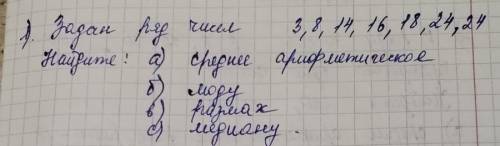 1). Задан ряд чисел 3, 8, 14, 16, 18, 24, 24
Найдите: а) среднее арифметическое
б) моду
в) размах
с) медиану.